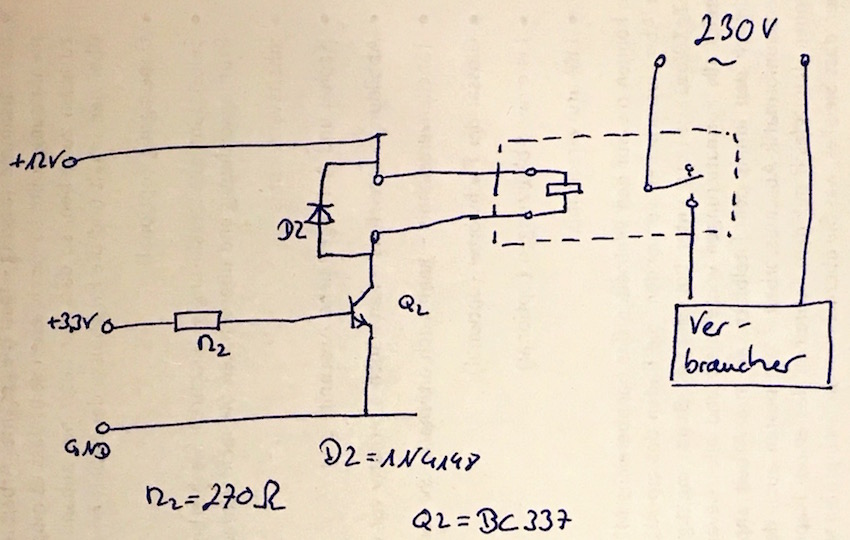 230V
~
+12V
D2
+3,3V
R2
Q2
Ver-
braucher
GND
D2=1N4148
R2=270Ω
Q2=BC337